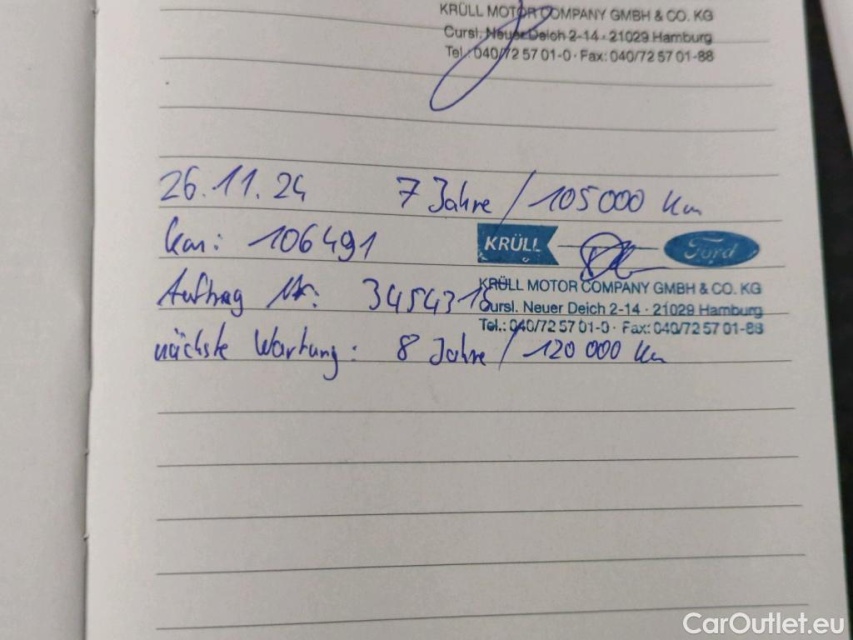 KRÜLL MOTOR COMPANY GMBH & CO. KG
Cursl. Neuer Deich 2-14 · 21029 Hamburg
Tel.: 040/72 57 01-0 · Fax: 040/72 57 01-88
26.11.24 7 Jahre / 105 000 km
km: 106491
KRÜLL Ford
Auftrag Nr: 3454318
KRÜLL MOTOR COMPANY GMBH & CO. KG
Cursl. Neuer Deich 2-14 · 21029 Hamburg
Tel.: 040/72 57 01-0 · Fax: 040/72 57 01-88
nächste Wartung: 8 Jahre / 120 000 km
CarOutlet.eu